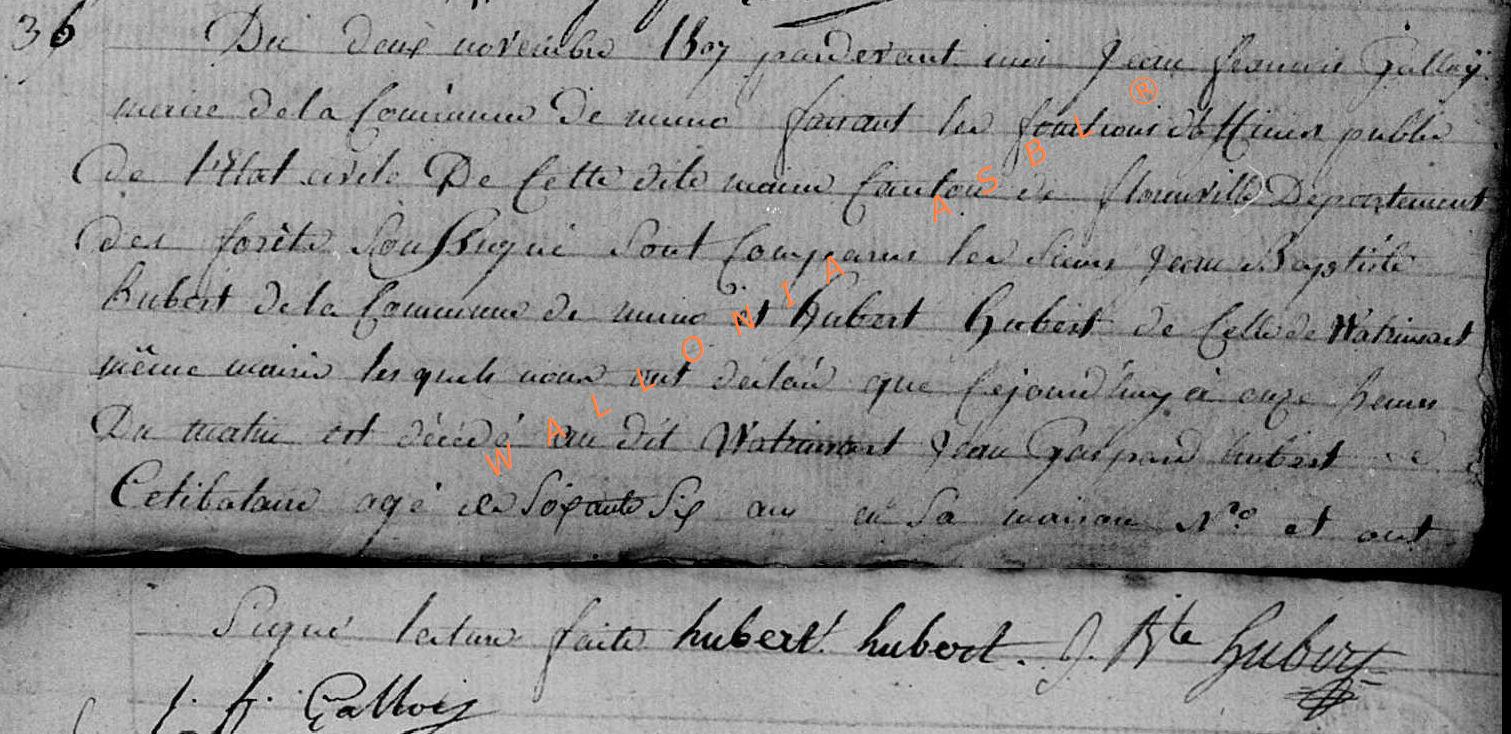 36 Du deux novembre 1807 pardevant moi Jean francois Galloÿ
maire de la Commune de muno faisant les fonctions d'officier public
de l'Etat civile De Cette dite mairie Canton de florenville Departement
des forêts Soussigné Sont Comparus les Sieurs Jean Baptiste
hubert de la Commune de muno et hubert hubert de Celle de Watrinsart
même mairie lesquels nous ont declaré que cejourd'huy à onze heures
Du matin est décédé au dit Watrinsart Jean Gaspard hubert
Celibataire agé de Soixante Six ans en Sa maison N.º et ont
Signé lecture faite hubert hubert. J. Bte hubert
j. f. Gallois
WALLONIA ASBL ®